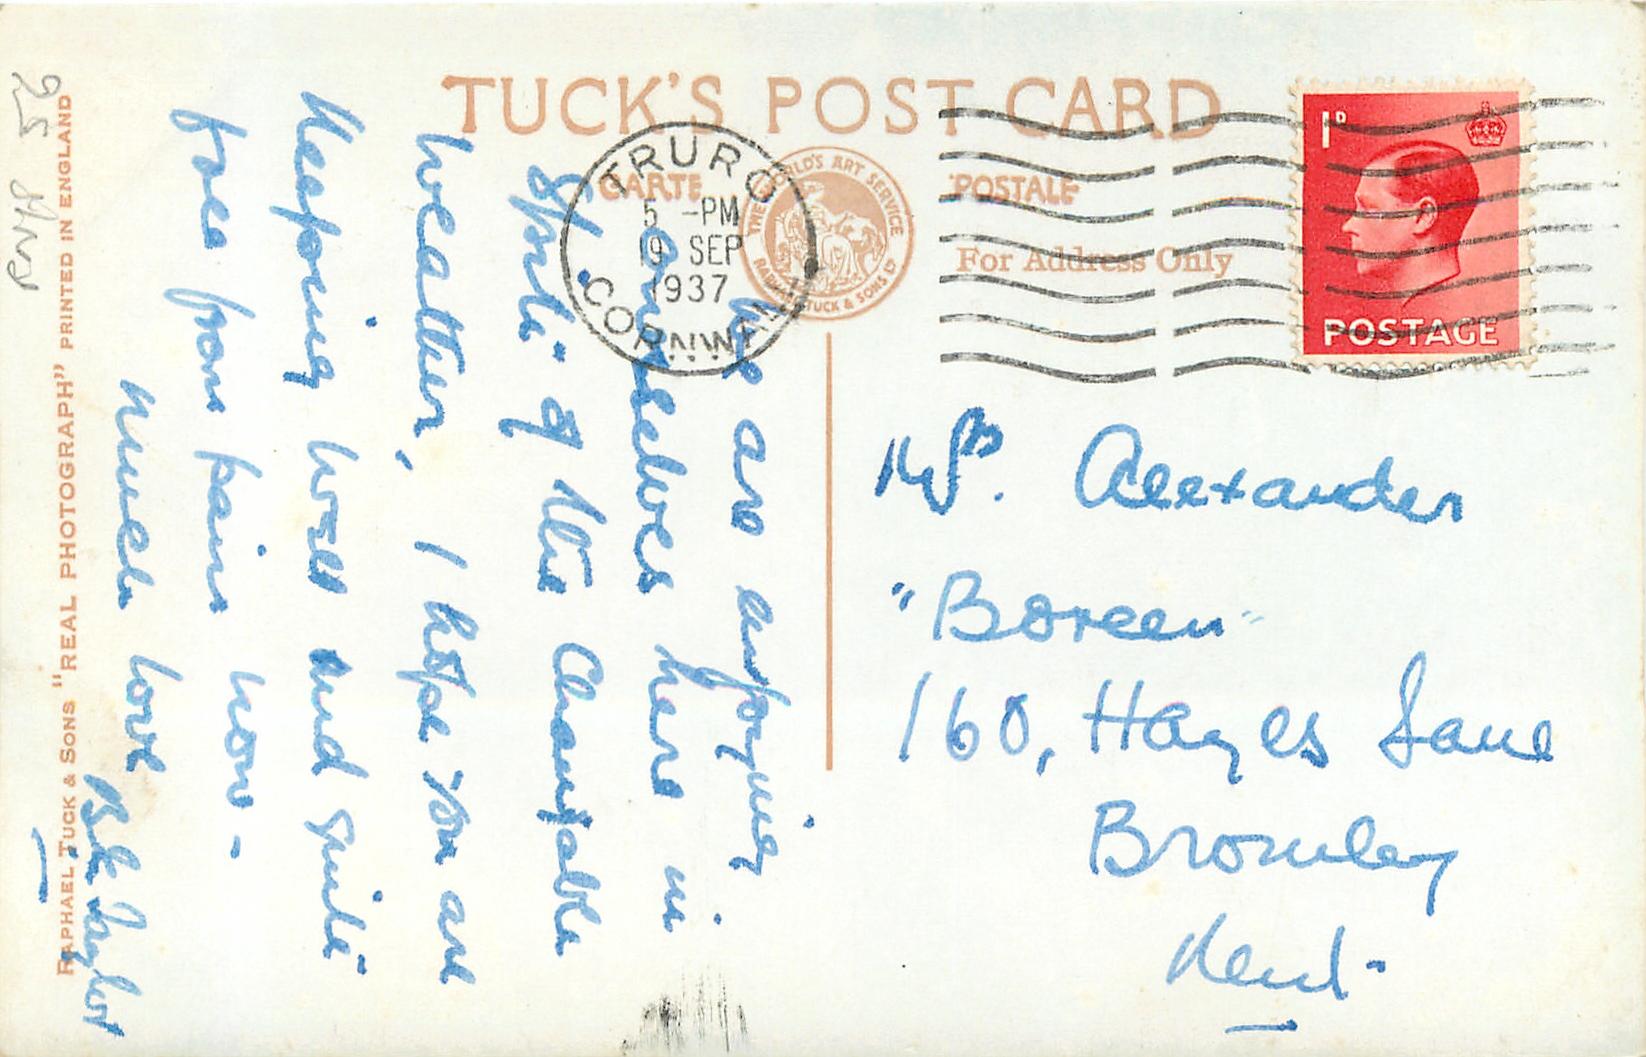 TUCK'S POST CARD
CARTE POSTALE
For Address Only
THE WORLD'S ART SERVICE
RAPHAEL TUCK & SONS LTD
TRURO
5 -PM
19 SEP
1937
CORNWALL
1D
POSTAGE
We are enjoying
ourselves here in
spite of the changeable
weather, I hope you are
keeping well and quite
free from pain now -
Much love
Taylor
Mrs. Alexander
"Boreen"
160, Hayes Lane
Bromley
Kent-
RAPHAEL TUCK & SONS "REAL PHOTOGRAPH" PRINTED IN ENGLAND